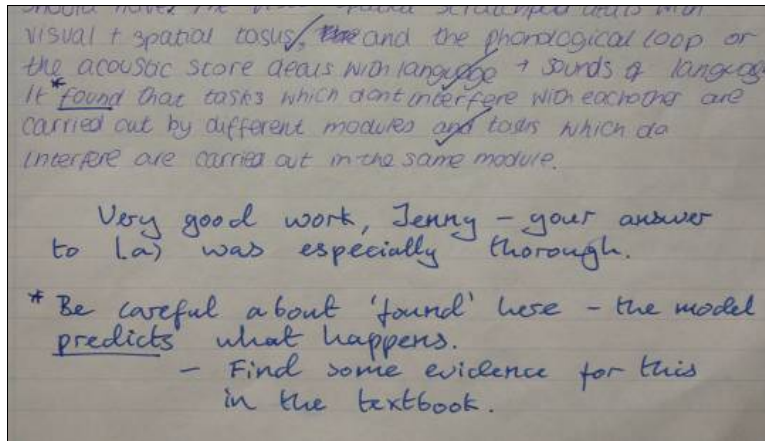 visual + spatial tasks, and the phonological loop or
the acoustic score deals with language + sounds of languag
It *found that tasks which dont interfere with eachother are
carried out by different modules and tasks which do
interfere are carried out in the same module.
Very good work, Jenny - your answer
to 1.a) was especially thorough.
* Be careful about 'found' here - the model
predicts what happens.
- Find some evidence for this
in the textbook.